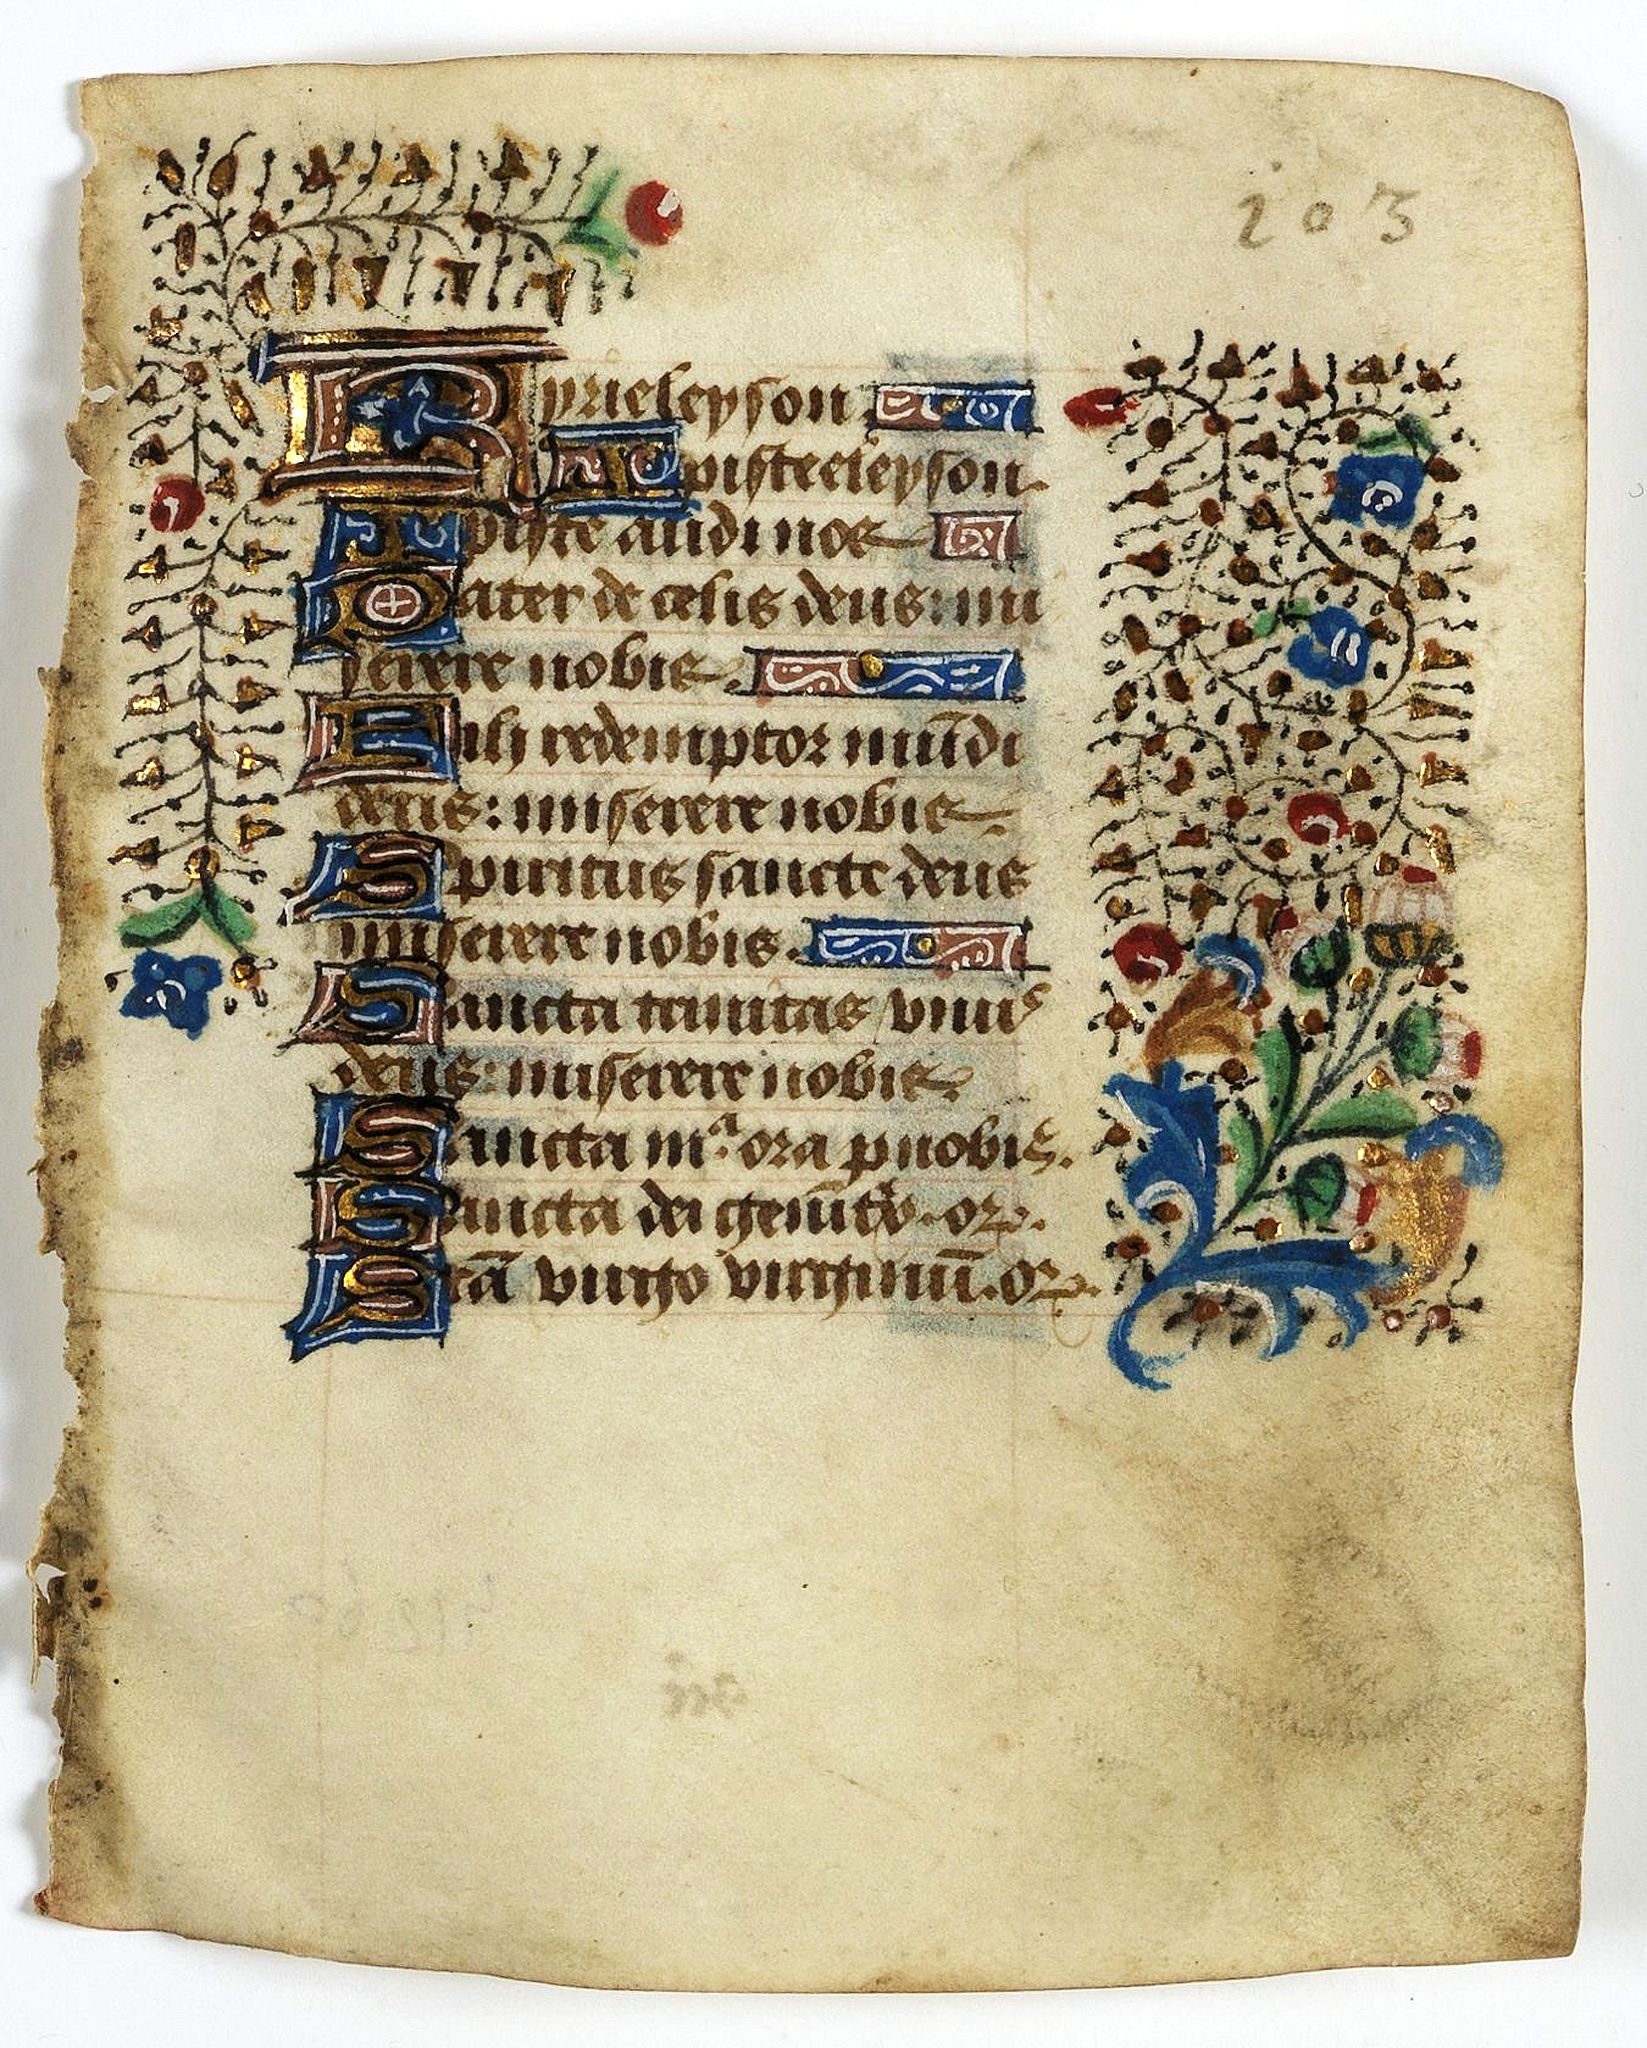 203
Kyrieleyson
Xpisteeleyson.
Xpiste audi nos
Pater de celis deus: mi
serere nobis.
Fili redemptor mūdi
deus: miserere nobis.
Spiritus sancte deus
miserere nobis.
Sancta trinitas vnus
deus: miserere nobis.
Sancta mᵃ. ora p nobis.
Sancta dei genitᵢx. or.
Scā virgo virginū. or.